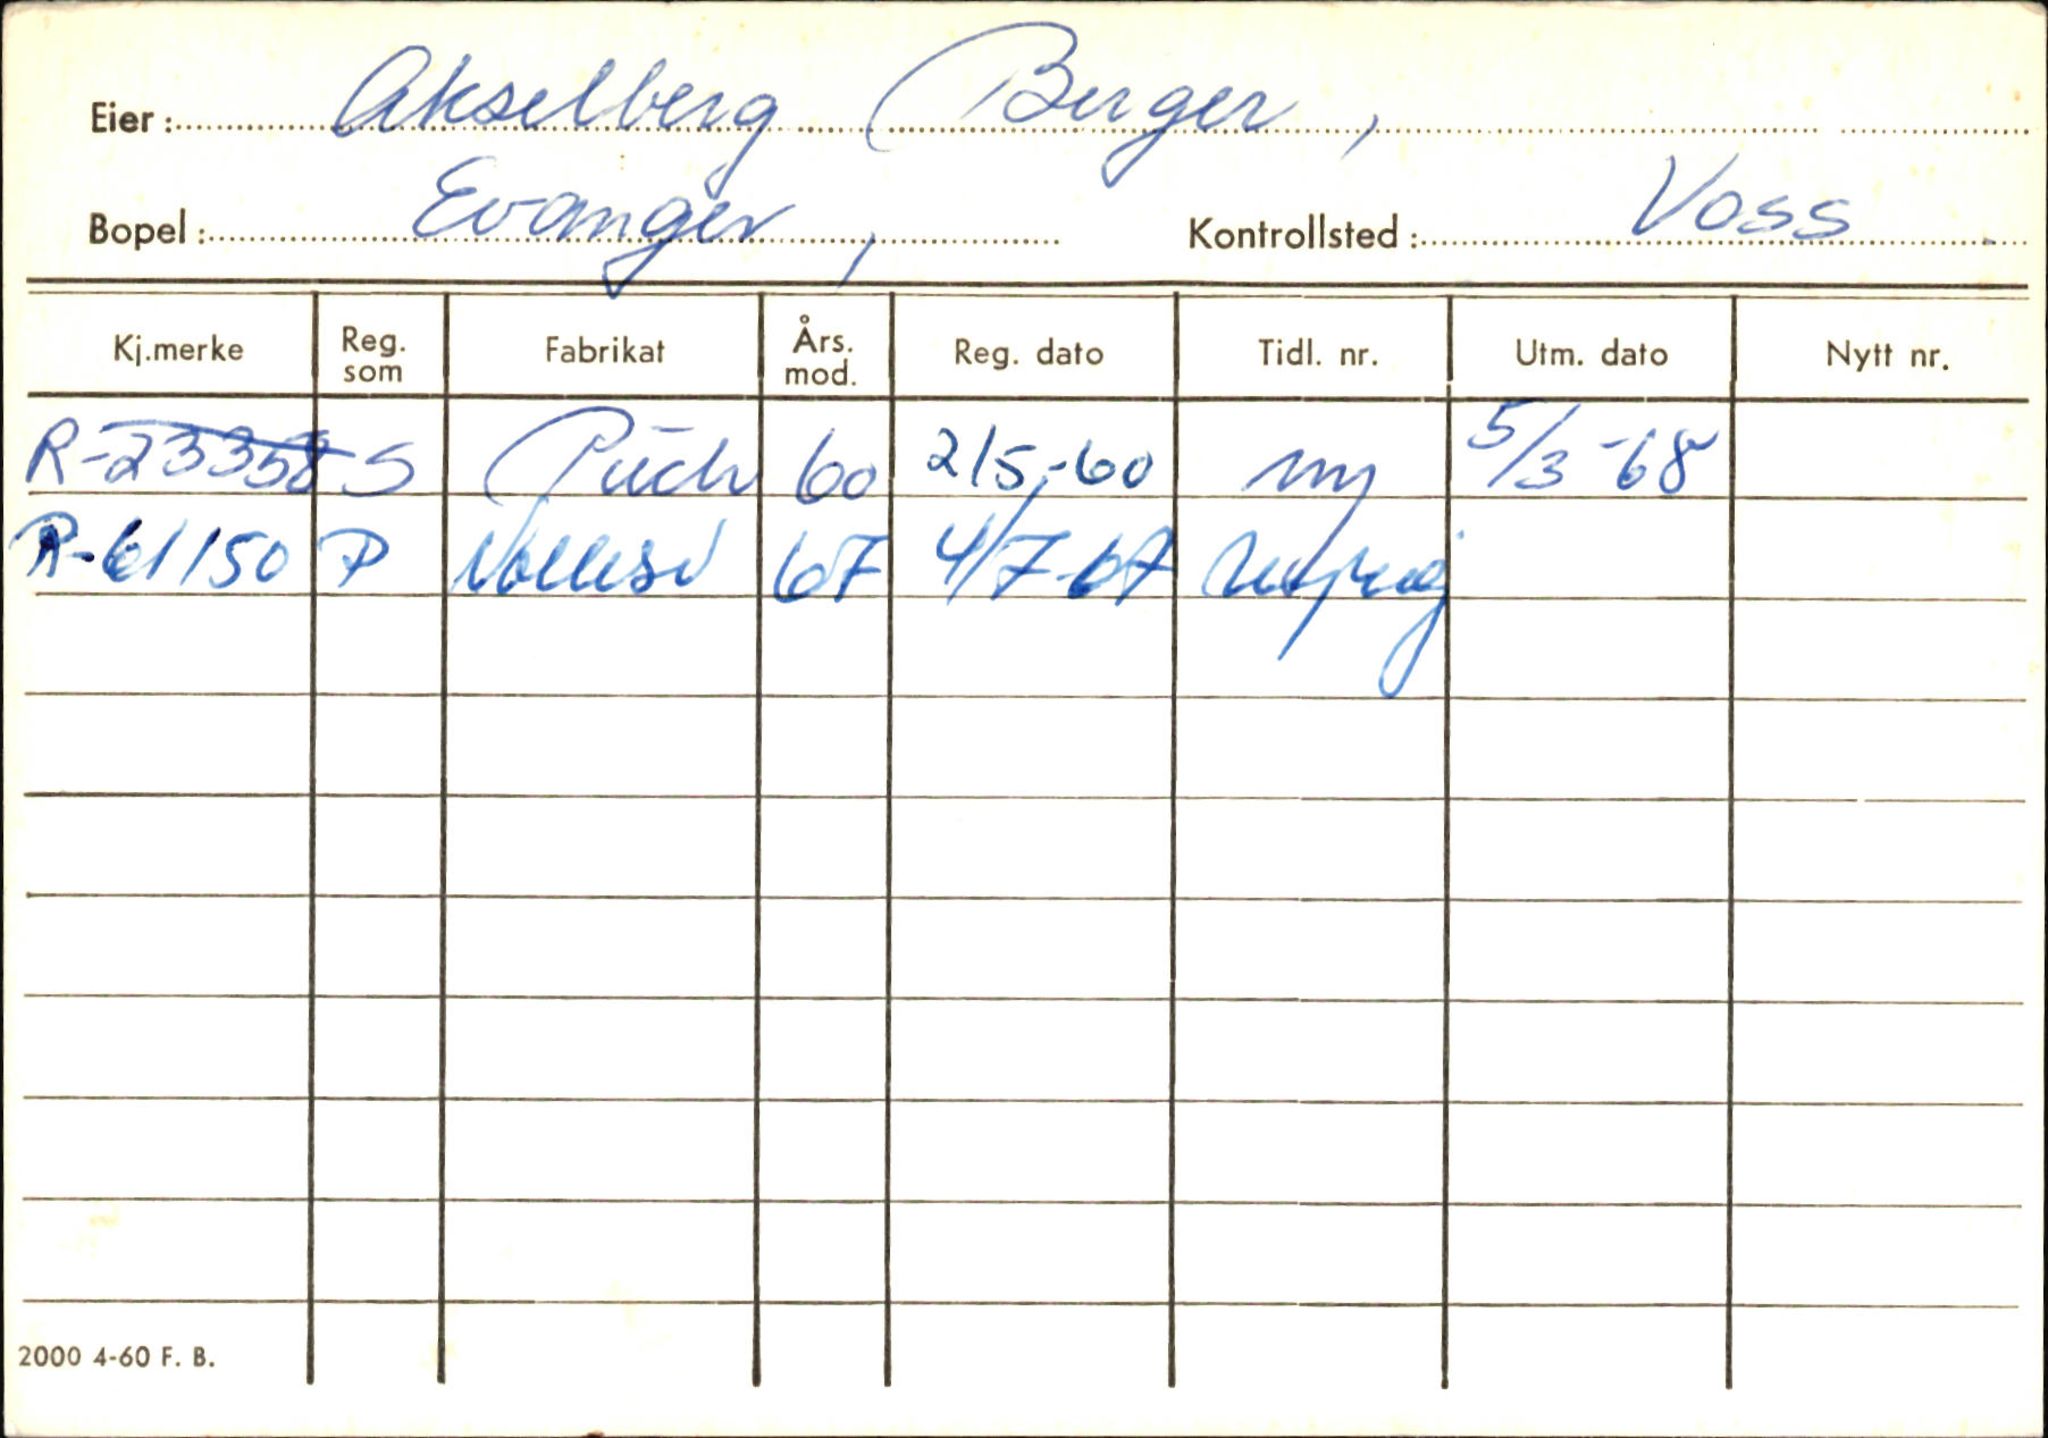 Eier: Akselberg Birger,
Bopel: Evanger, Kontrollsted: Voss
Kj.merke Reg. som Fabrikat Års. mod. Reg. dato Tidl. nr. Utm. dato Nytt nr.
R-23358 S Puch 60 2/5-60 ny 5/3-68
R-61150 P 67 4/7-67
2000 4-60 F. B.